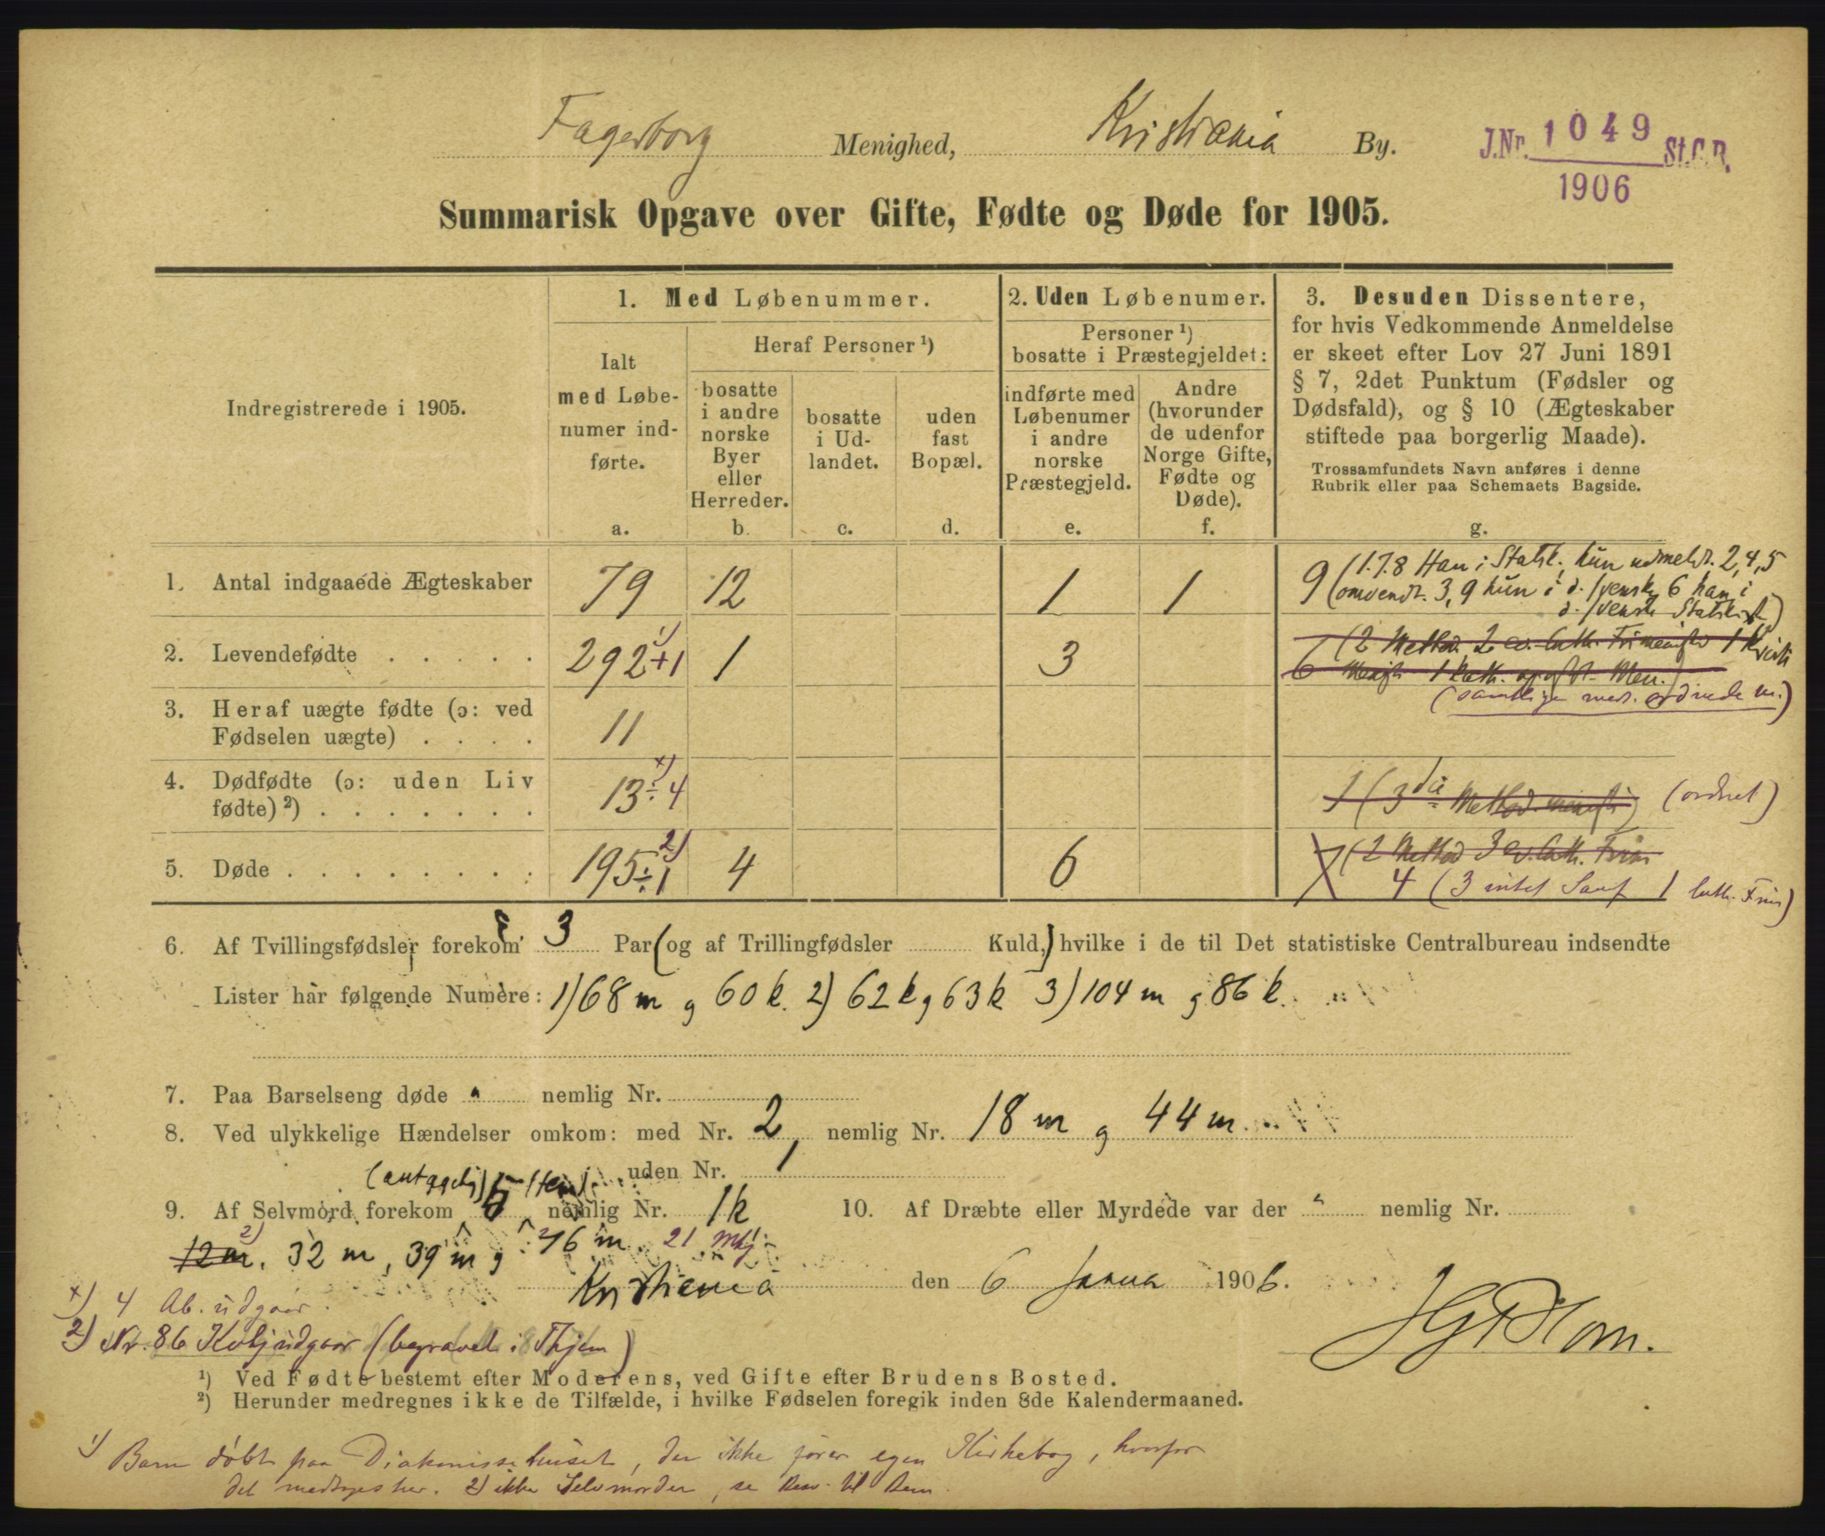 Fagerborg Menighed, Kristiania By.
J.Nr. 1049 St.C.B.
1906
Summarisk Opgave over Gifte, Fødte og Døde for 1905.
Indregistrerede i 1905.
1. Med Løbenummer.
Ialt med Løbe-
numer ind-
førte.
a.
Heraf Personer ¹)
bosatte
i andre
norske
Byer
eller
Herreder.
b.
bosatte
i Ud-
landet.
c.
uden
fast
Bopæl.
d.
2. Uden Løbenumer.
Personer ¹)
bosatte i Præstegjeldet:
indførte med
Løbenumer
i andre
norske
Præstegjeld.
e.
Andre
(hvorunder
de udenfor
Norge Gifte,
Fødte og
Døde).
f.
3. Desuden Dissentere,
for hvis Vedkommende Anmeldelse
er skeet efter Lov 27 Juni 1891
§ 7, 2det Punktum (Fødsler og
Dødsfald), og § 10 (Ægteskaber
stiftede paa borgerlig Maade).
Trossamfundets Navn anføres i denne
Rubrik eller paa Schemaets Bagside.
g.
1. Antal indgaaede Ægteskaber 79 12 1 1 9 (1.7.8 Han i Statsk. hun udmeldt. 2,4,5
omvendt. 3,9 hun i d. svenske 6 han i
d. svenske Statskirke)
2. Levendefødte 292+1 ¹) 1 3 7 (2 Method. 2 ev. luth. Frimenighed 1
6 1 kath. ap.
(samtlige med. ordnede m.)
3. Heraf uægte fødte (ɔ: ved
Fødselen uægte) 11
4. Dødfødte (ɔ: uden Liv
fødte) ²) 13÷4 ×) 1 (3die Method. menigh) (ordnet)
5. Døde 195÷1 ²) 4 6 7 (2 Method 3 ev. luth. Frim
4 (3 intet Samf 1 luth. Frim)
6. Af Tvillingsfødsler forekom 3 Par (og af Trillingfødsler Kuld,) hvilke i de til Det statistiske Centralbureau indsendte
Lister har følgende Numere: 1) 68 m og 60 k. 2) 62 k og 63 k 3) 104 m og 86 k.
7. Paa Barselseng døde " nemlig Nr.
8. Ved ulykkelige Hændelser omkom: med Nr. 2, nemlig Nr. 18 m og 44 m.
uden Nr. 1
(antagelig) 5 (fem)
9. Af Selvmord forekom nemlig Nr. 1k 10. Af Dræbte eller Myrdede var der " nemlig Nr.
12 m. ²) 32 m, 39 m og 76 m. 21 Mkj
Kristiania den 6 Janua 1906.
×) 4 Ab. udgaar.
2) Nr. 86 Kvkj udgaar (begravet i Thjem)
HGBlom.
¹) Ved Fødte bestemt efter Moderens, ved Gifte efter Brudens Bosted.
²) Herunder medregnes ikke de Tilfælde, i hvilke Fødselen foregik inden 8de Kalendermaaned.
1) Barn døbt paa Diakonissehuset, der ikke fører egen Kirkebog, hvorfor
det medtages her. 2) ikke Selvmorder, se Besv. til Bem.